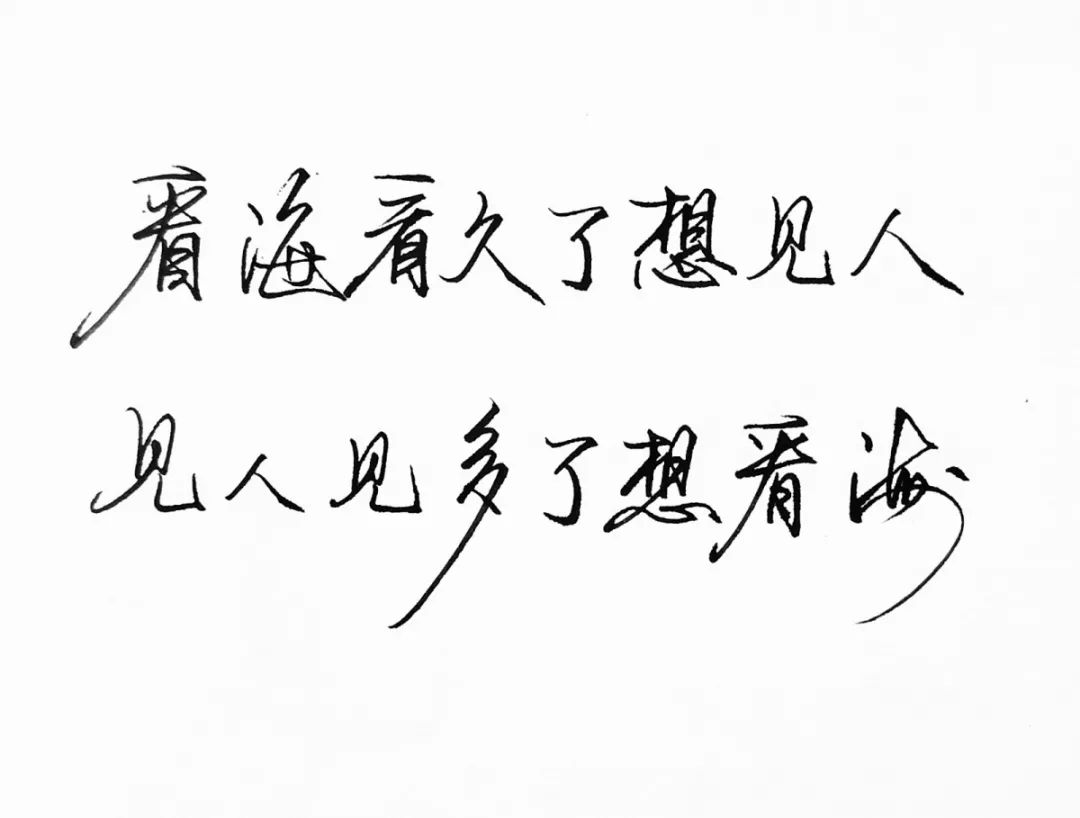 看海看久了想见人
见人见多了想看海